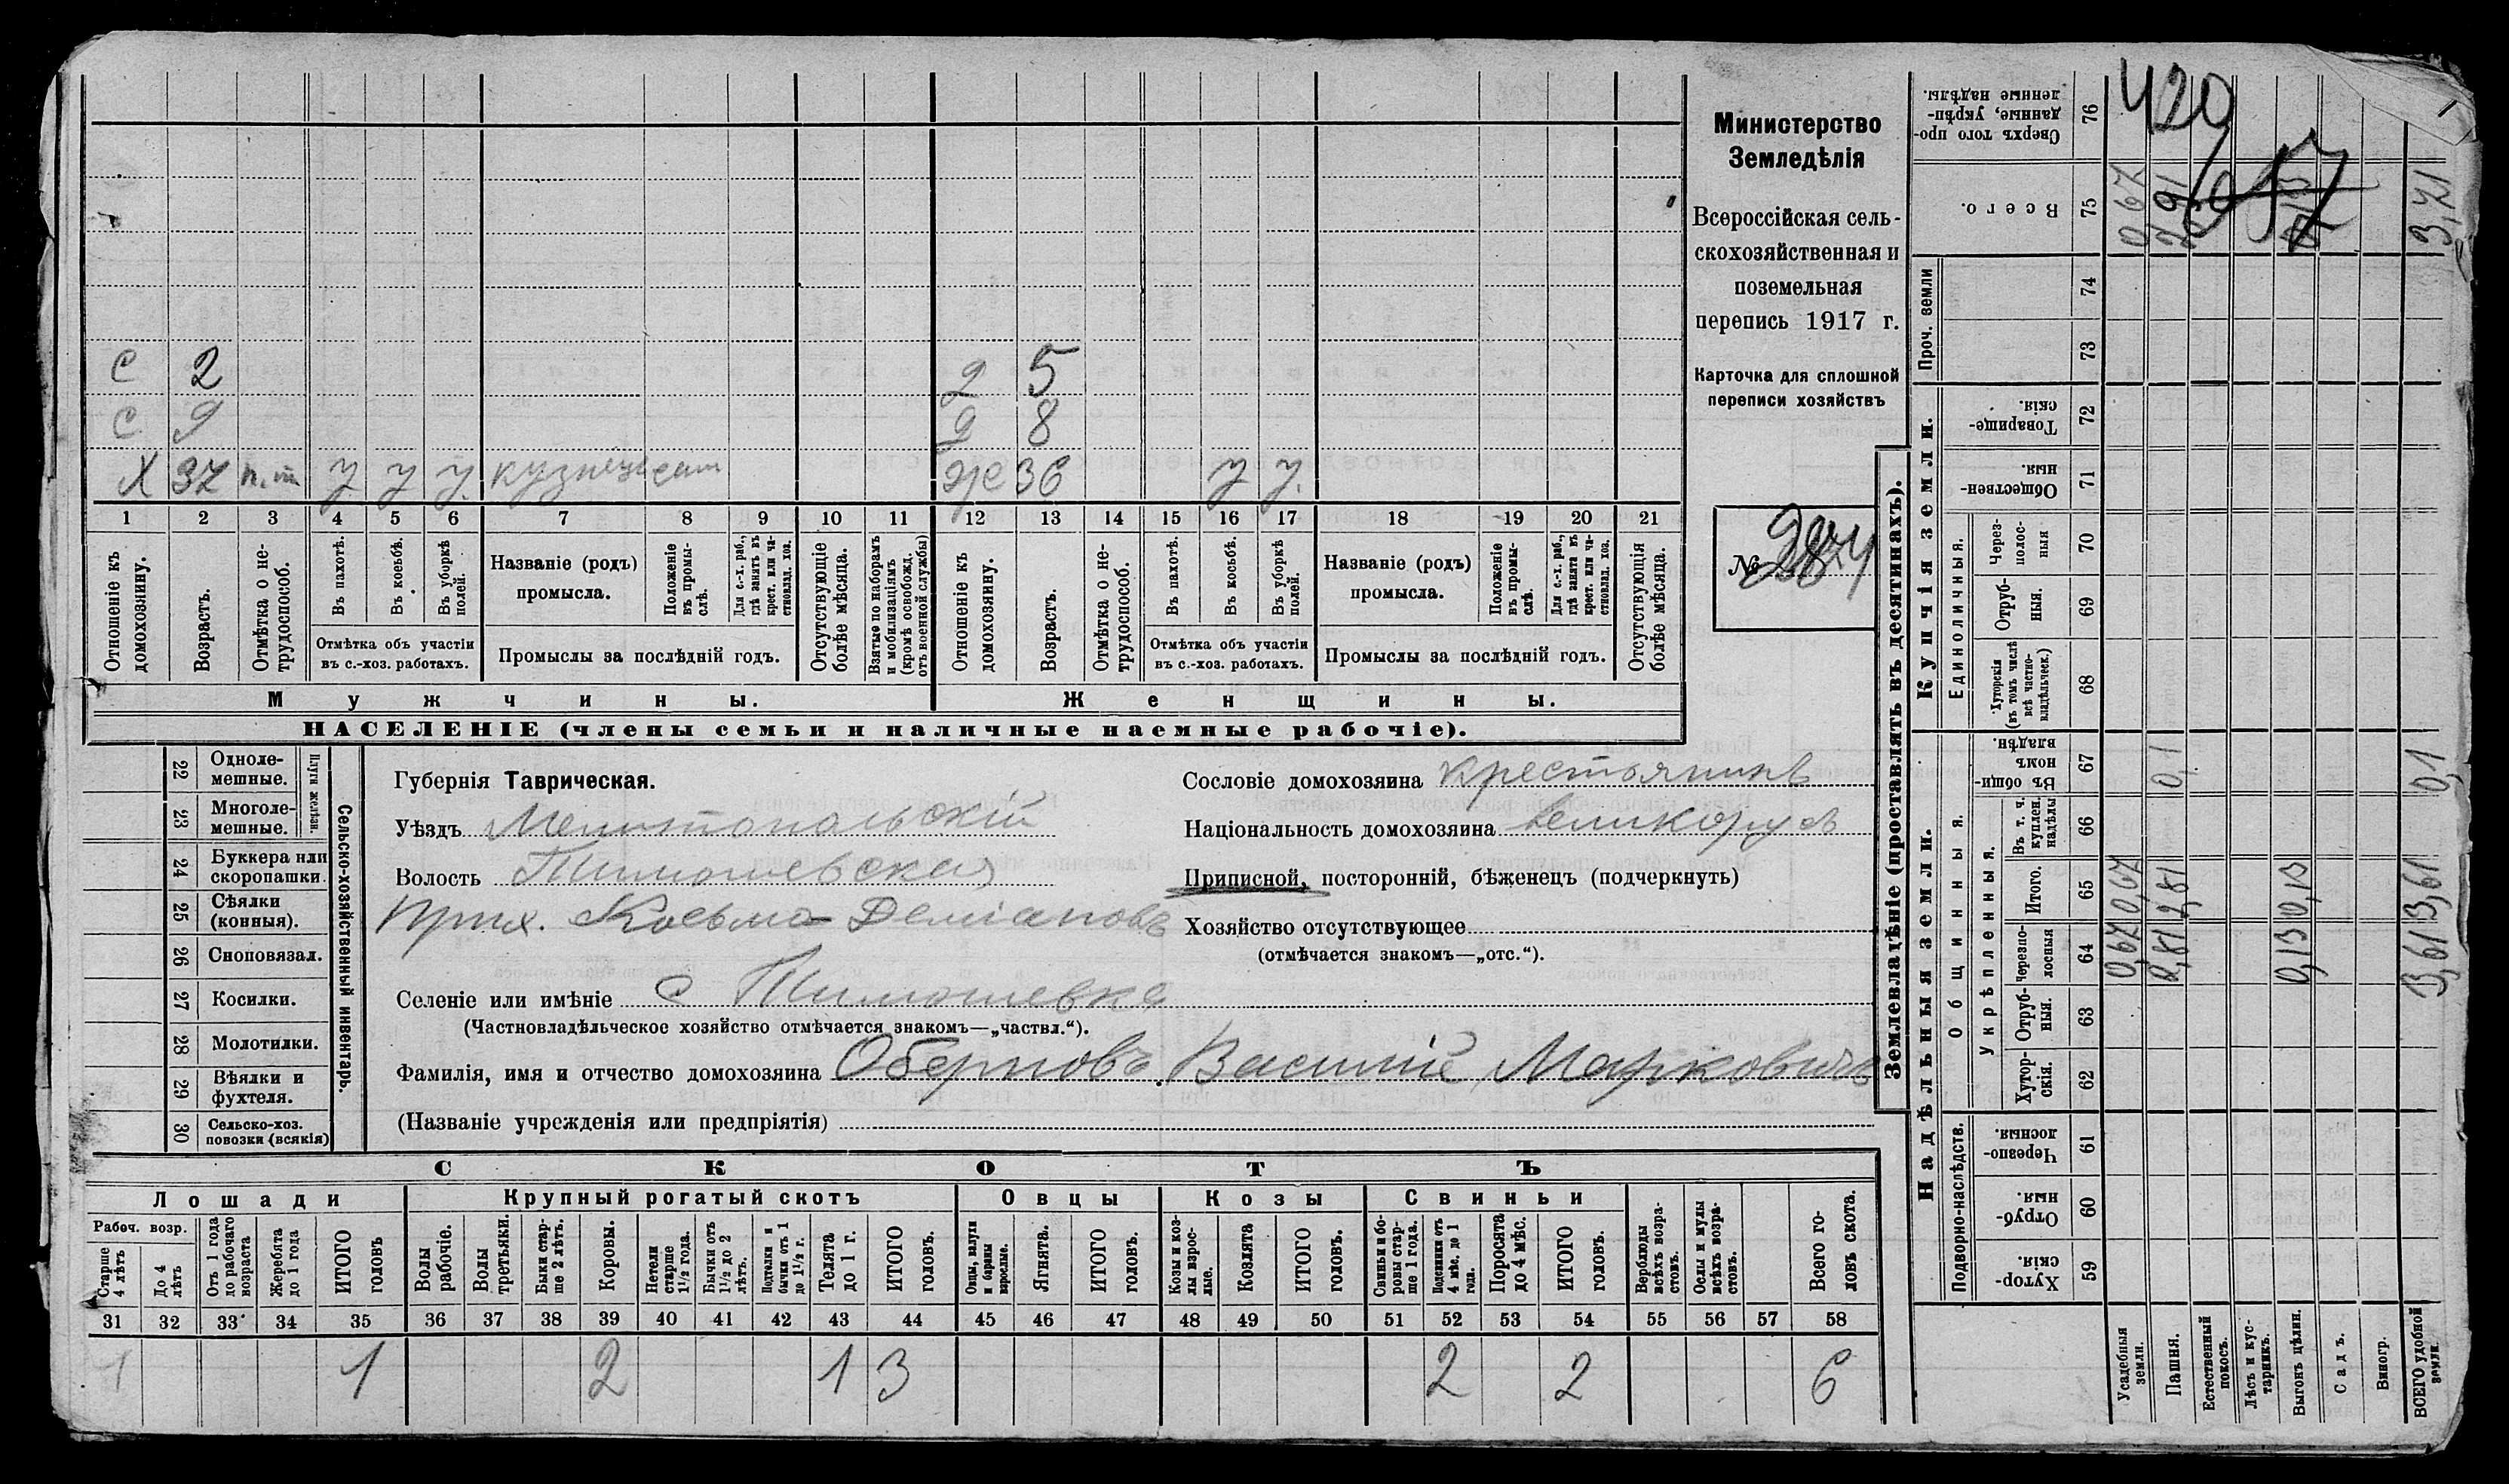 Министерство
Земледѣлія
Всероссійская сель-
скохозяйственная и
поземельная
перепись 1917 г.
Карточка для сплошной
переписи хозяйствъ
№
с 2 д 5
с 9 д 8
Х 37 п. т у у у. кузнецъ сам же 36 у у.
1 2 3 4 5 6 7 8 9 10 11 12 13 14 15 16 17 18 19 20 21
Отношеніе къ домохозяину.
Возрастъ.
Отмѣтка о не-трудоспособ.
Въ пахотѣ.
Въ косьбѣ.
Въ уборкѣ полей.
Отмѣтка объ участіи
въ с.-хоз. работахъ.
Названіе (родъ)
промысла.
Положеніе въ промы-слѣ.
Для с.-х. раб., гдѣ занятъ въ крест. или ча-стновлад. хоз.
Промыслы за послѣдній годъ.
Отсутствующіе болѣе мѣсяца.
Взятые по наборамъ и мобилизаціямъ (кромѣ освобожд. отъ военной службы)
Отношеніе къ домохозяину.
Возрастъ.
Отмѣтка о не-трудоспособ.
Въ пахотѣ.
Въ косьбѣ.
Въ уборкѣ полей.
Отмѣтка объ участіи
въ с.-хоз. работахъ.
Названіе (родъ)
промысла.
Положеніе въ промы-слѣ.
Для с.-х. раб., гдѣ занята въ крест. или ча-стновлад. хоз.
Промыслы за послѣдній годъ.
Отсутствующія болѣе мѣсяца.
Мужчины. Женщины.
НАСЕЛЕНІЕ (члены семьи и наличные наемные рабочіе).
Сельско-хозяйственный инвентарь.
Плуги желѣзн.
22 Одноле-мешные.
23 Многоле-мешные.
24 Буккера или скоропашки.
25 Сѣялки (конныя).
26 Сноповязал.
27 Косилки.
28 Молотилки.
29 Вѣялки и фухтеля.
30 Сельско-хоз. повозки (всякія)
Губернія Таврическая.
Уѣздъ Мелитопольскій
Волость Тимошевская
Прих. Косьмо Деміановъ
Селеніе или имѣніе с Тимошевка
(Частновладѣльческое хозяйство отмѣчается знакомъ—„частвл.“).
Фамилія, имя и отчество домохозяина Оберповъ Василій Марковичъ
(Названіе учрежденія или предпріятія)
Сословіе домохозяина крестьянинъ
Національность домохозяина великорус
Приписной, посторонній, бѣженецъ (подчеркнуть)
Хозяйство отсутствующее
(отмѣчается знакомъ—„отс.“).
СКОТЪ
Лошади Крупный рогатый скотъ Овцы Козы Свиньи
Рабоч. возр.
Старше 4 лѣтъ
До 4 лѣтъ
Отъ 1 года до рабочаго возраста
Жеребята до 1 года
ИТОГО головъ
Волы рабочіе.
Волы третьяки.
Быки стар-ше 2 лѣтъ.
Коровы.
Нетели старше 1½ года.
Бычки отъ 1½ до 2 лѣтъ.
Подтелки и бычки отъ 1 до 1½ г.
Телята до 1 г.
ИТОГО головъ.
Овцы, валухи и бараны взрослые.
Ягнята.
ИТОГО головъ.
Козы и коз-лы взрос-лые.
Козлята
ИТОГО головъ.
Свиньи и бо-ровы стар-ше 1 года.
Подсвинки отъ 4 мѣс. до 1 года.
Поросята до 4 мѣс.
ИТОГО головъ.
Верблюды всѣхъ возра-стовъ.
Ослы и мулы всѣхъ возра-стовъ.
Всего го-ловъ скота.
31 32 33 34 35 36 37 38 39 40 41 42 43 44 45 46 47 48 49 50 51 52 53 54 55 56 57 58
1 1 2 1 3 2 2 6
Землевладѣніе (проставлять въ десятинахъ).
Купчія земли.
Надѣльныя земли.
Сверхъ того про-данные, укрѣп-ленные надѣлы. 76
Всего. 75
Проч. земли
74
73
Товарище-скія. 72
Обществен-ныя. 71
Единоличныя.
Через-полос-ныя 70
Отруб-ныя. 69
Хуторскія (въ томъ числѣ всѣ частно-владѣльческ.) 68
Общинныя.
Въ общи-номъ владѣн. 67
Укрѣпленныя.
Въ т. ч. куплен. надѣлы 66
Итого. 65
Черезпо-лосныя 64
Отруб-ныя. 63
Хутор-скія. 62
Подворно-наслѣдств.
Черезпо-лосныя. 61
Отруб-ныя. 60
Хутор-скія. 59
Усадебныя земли.
Пашня.
Естественный покосъ.
Лѣсъ и кус-тарникъ.
Выгонъ цѣлин.
Садъ.
Виногр.
ВСЕГО удобной земли.
420
0,67 2,91 3,71
0,1 0,1
0,67 2,81 0,13 3,61
0,67 2,81 0,13 3,61